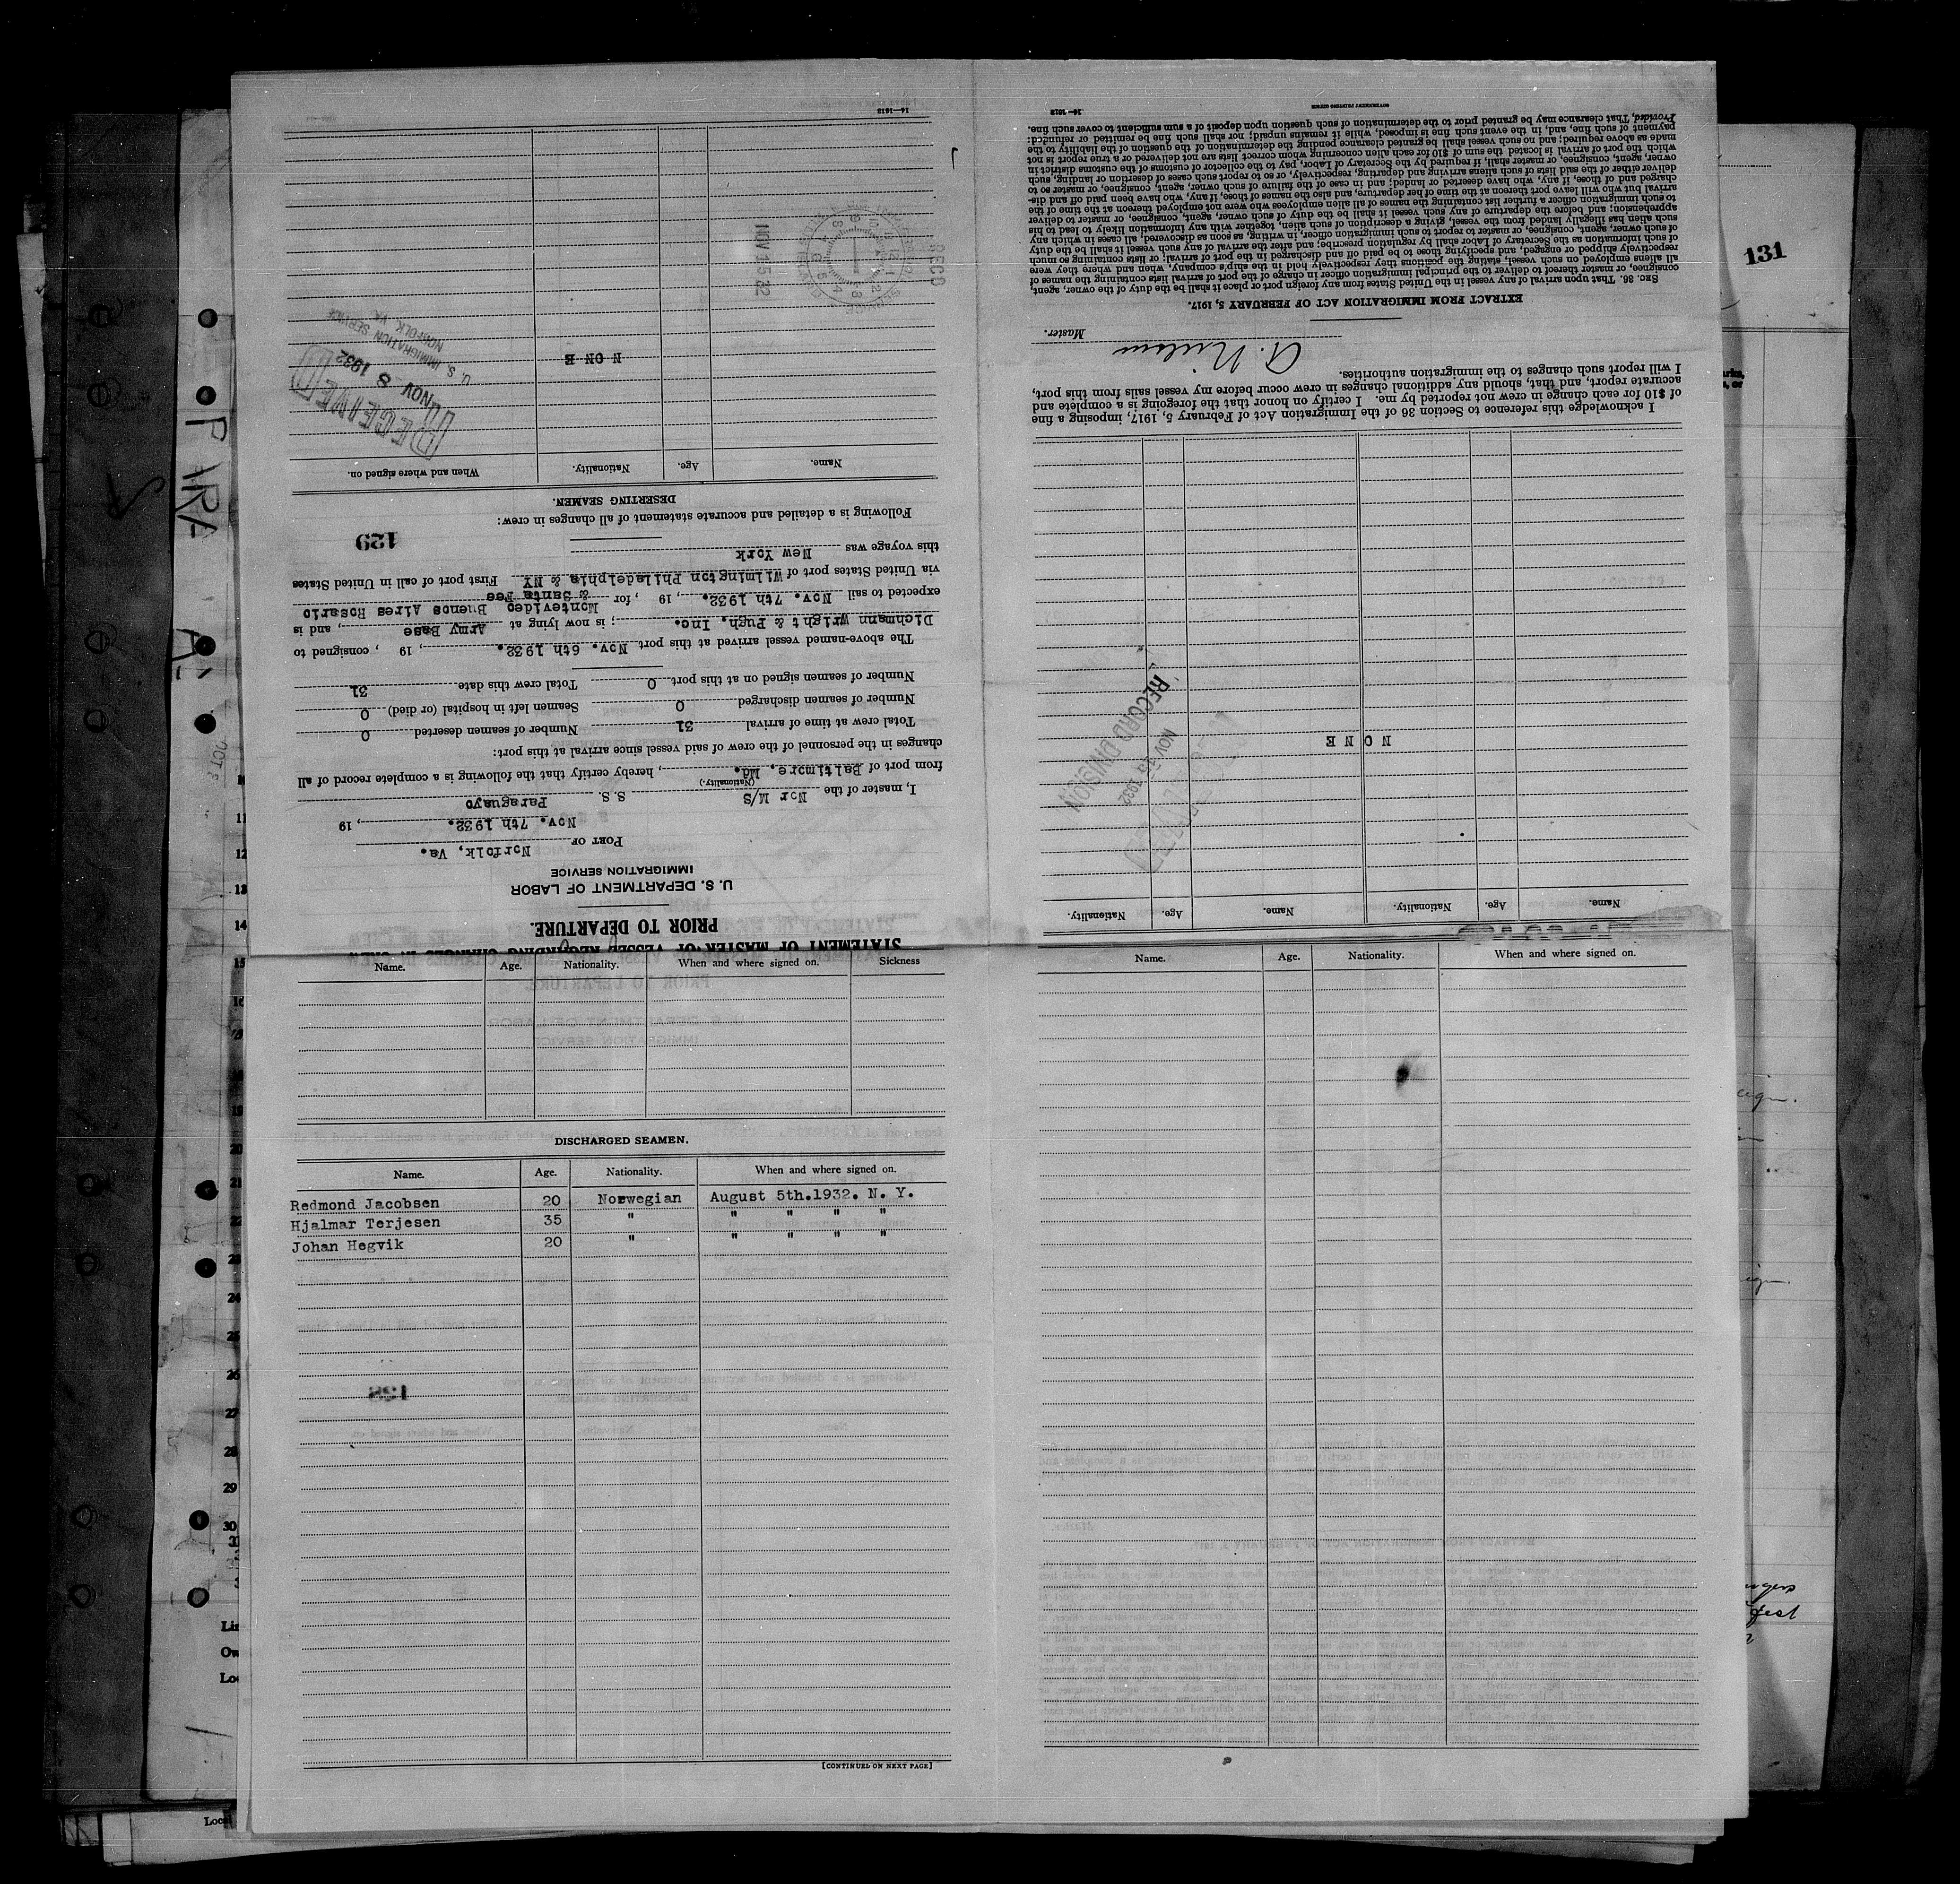 STATEMENT OF MASTER OF VESSEL REGARDING CHANGES IN CREW
PRIOR TO DEPARTURE.
U. S. DEPARTMENT OF LABOR
IMMIGRATION SERVICE
PORT OF Norfolk, Va.
Nov. 7th 1932. , 19
I, master of the Nor M/S S. S. Paraguayo
(Nationality.)
from port of Baltimore, Md. , hereby certify that the following is a complete record of all
changes in the personnel of the crew of said vessel since arrival at this port:
Total crew at time of arrival 31 Number of seamen deserted 0
Number of seamen discharged 0 Seamen left in hospital (or died) 0
Number of seamen signed on at this port 0 Total crew this date 31
The above-named vessel arrived at this port Nov. 6th 1932. , 19 , consigned to
Dichmann Wright & Pugh. Inc. ; is now lying at Army Base , and is
expected to sail Nov. 7th 1932. , 19 , for Montevideo Buenos Aires Rosario
& Santa Fee
via United States port of Wilmington Philadelphia & NY First port of call in United States
this voyage was New York
129
Following is a detailed and accurate statement of all changes in crew:
DESERTING SEAMEN.
Name. Age. Nationality. When and where signed on.
NONE
RECEIVED
NOV 8 1932
U. S. IMMIGRATION SERVICE
NORFOLK, VA.
REC'D
NOV 15 32
14—1618
Name. Age. Nationality. Name. Age. Nationality.
NONE
RECEIVED
NOV 1932
RECORD DIVISION
I acknowledge this reference to Section 36 of the Immigration Act of February 5, 1917, imposing a fine
of $10 for each change in crew not reported by me. I certify on honor that the foregoing is a complete and
accurate report, and that, should any additional changes in crew occur before my vessel sails from this port,
I will report such changes to the immigration authorities.
Master.
EXTRACT FROM IMMIGRATION ACT OF FEBRUARY 5, 1917.
SEC. 36. That upon arrival of any vessel in the United States from any foreign port or place it shall be the duty of the owner, agent,
consignee, or master thereof to deliver to the principal immigration officer in charge of the port of arrival lists containing the names of
all aliens employed on such vessel, stating the positions they respectively hold in the ship's company, when and where they were
respectively shipped or engaged, and specifying those to be paid off and discharged in the port of arrival; or lists containing so much
of such information as the Secretary of Labor shall by regulation prescribe; and after the arrival of any such vessel it shall be the duty
of such owner, agent, consignee, or master to report to such immigration officer, in writing, as soon as discovered, all cases in which any
such alien has illegally landed from the vessel, giving a description of such alien, together with any information likely to lead to his
apprehension; and before the departure of any such vessel it shall be the duty of such owner, agent, consignee, or master to deliver
to such immigration officer a further list containing the names of all alien employees who were not employed thereon at the time of the
arrival but who will leave port thereon at the time of her departure, and also the names of those, if any, who have been paid off and dis-
charged and of those, if any, who have deserted or landed; and in case of the failure of such owner, agent, consignee, or master so to
deliver either of the said lists of such aliens arriving and departing, respectively, or so to report such cases of desertion or landing, such
owner, agent, consignee, or master shall, if required by the Secretary of Labor, pay to the collector of customs of the customs district in
which the port of arrival is located the sum of $10 for each alien concerning whom correct lists are not delivered or a true report is not
made as above required; and no such vessel shall be granted clearance pending the determination of the question of the liability to the
payment of such fine, and, in the event such fine is imposed, while it remains unpaid; nor shall such fine be remitted or refunded:
Provided, That clearance may be granted prior to the determination of such question upon deposit of a sum sufficient to cover such fine.
14—1618 GOVERNMENT PRINTING OFFICE
Name. Age. Nationality. When and where signed on. Sickness
DISCHARGED SEAMEN.
Name. Age. Nationality. When and where signed on.
Redmond Jacobsen 20 Norwegian August 5th.1932. N. Y.
Hjalmar Terjesen 35 " " " " "
Johan Hegvik 20 " " " " "
[CONTINUED ON NEXT PAGE]
Name. Age. Nationality. When and where signed on.
131